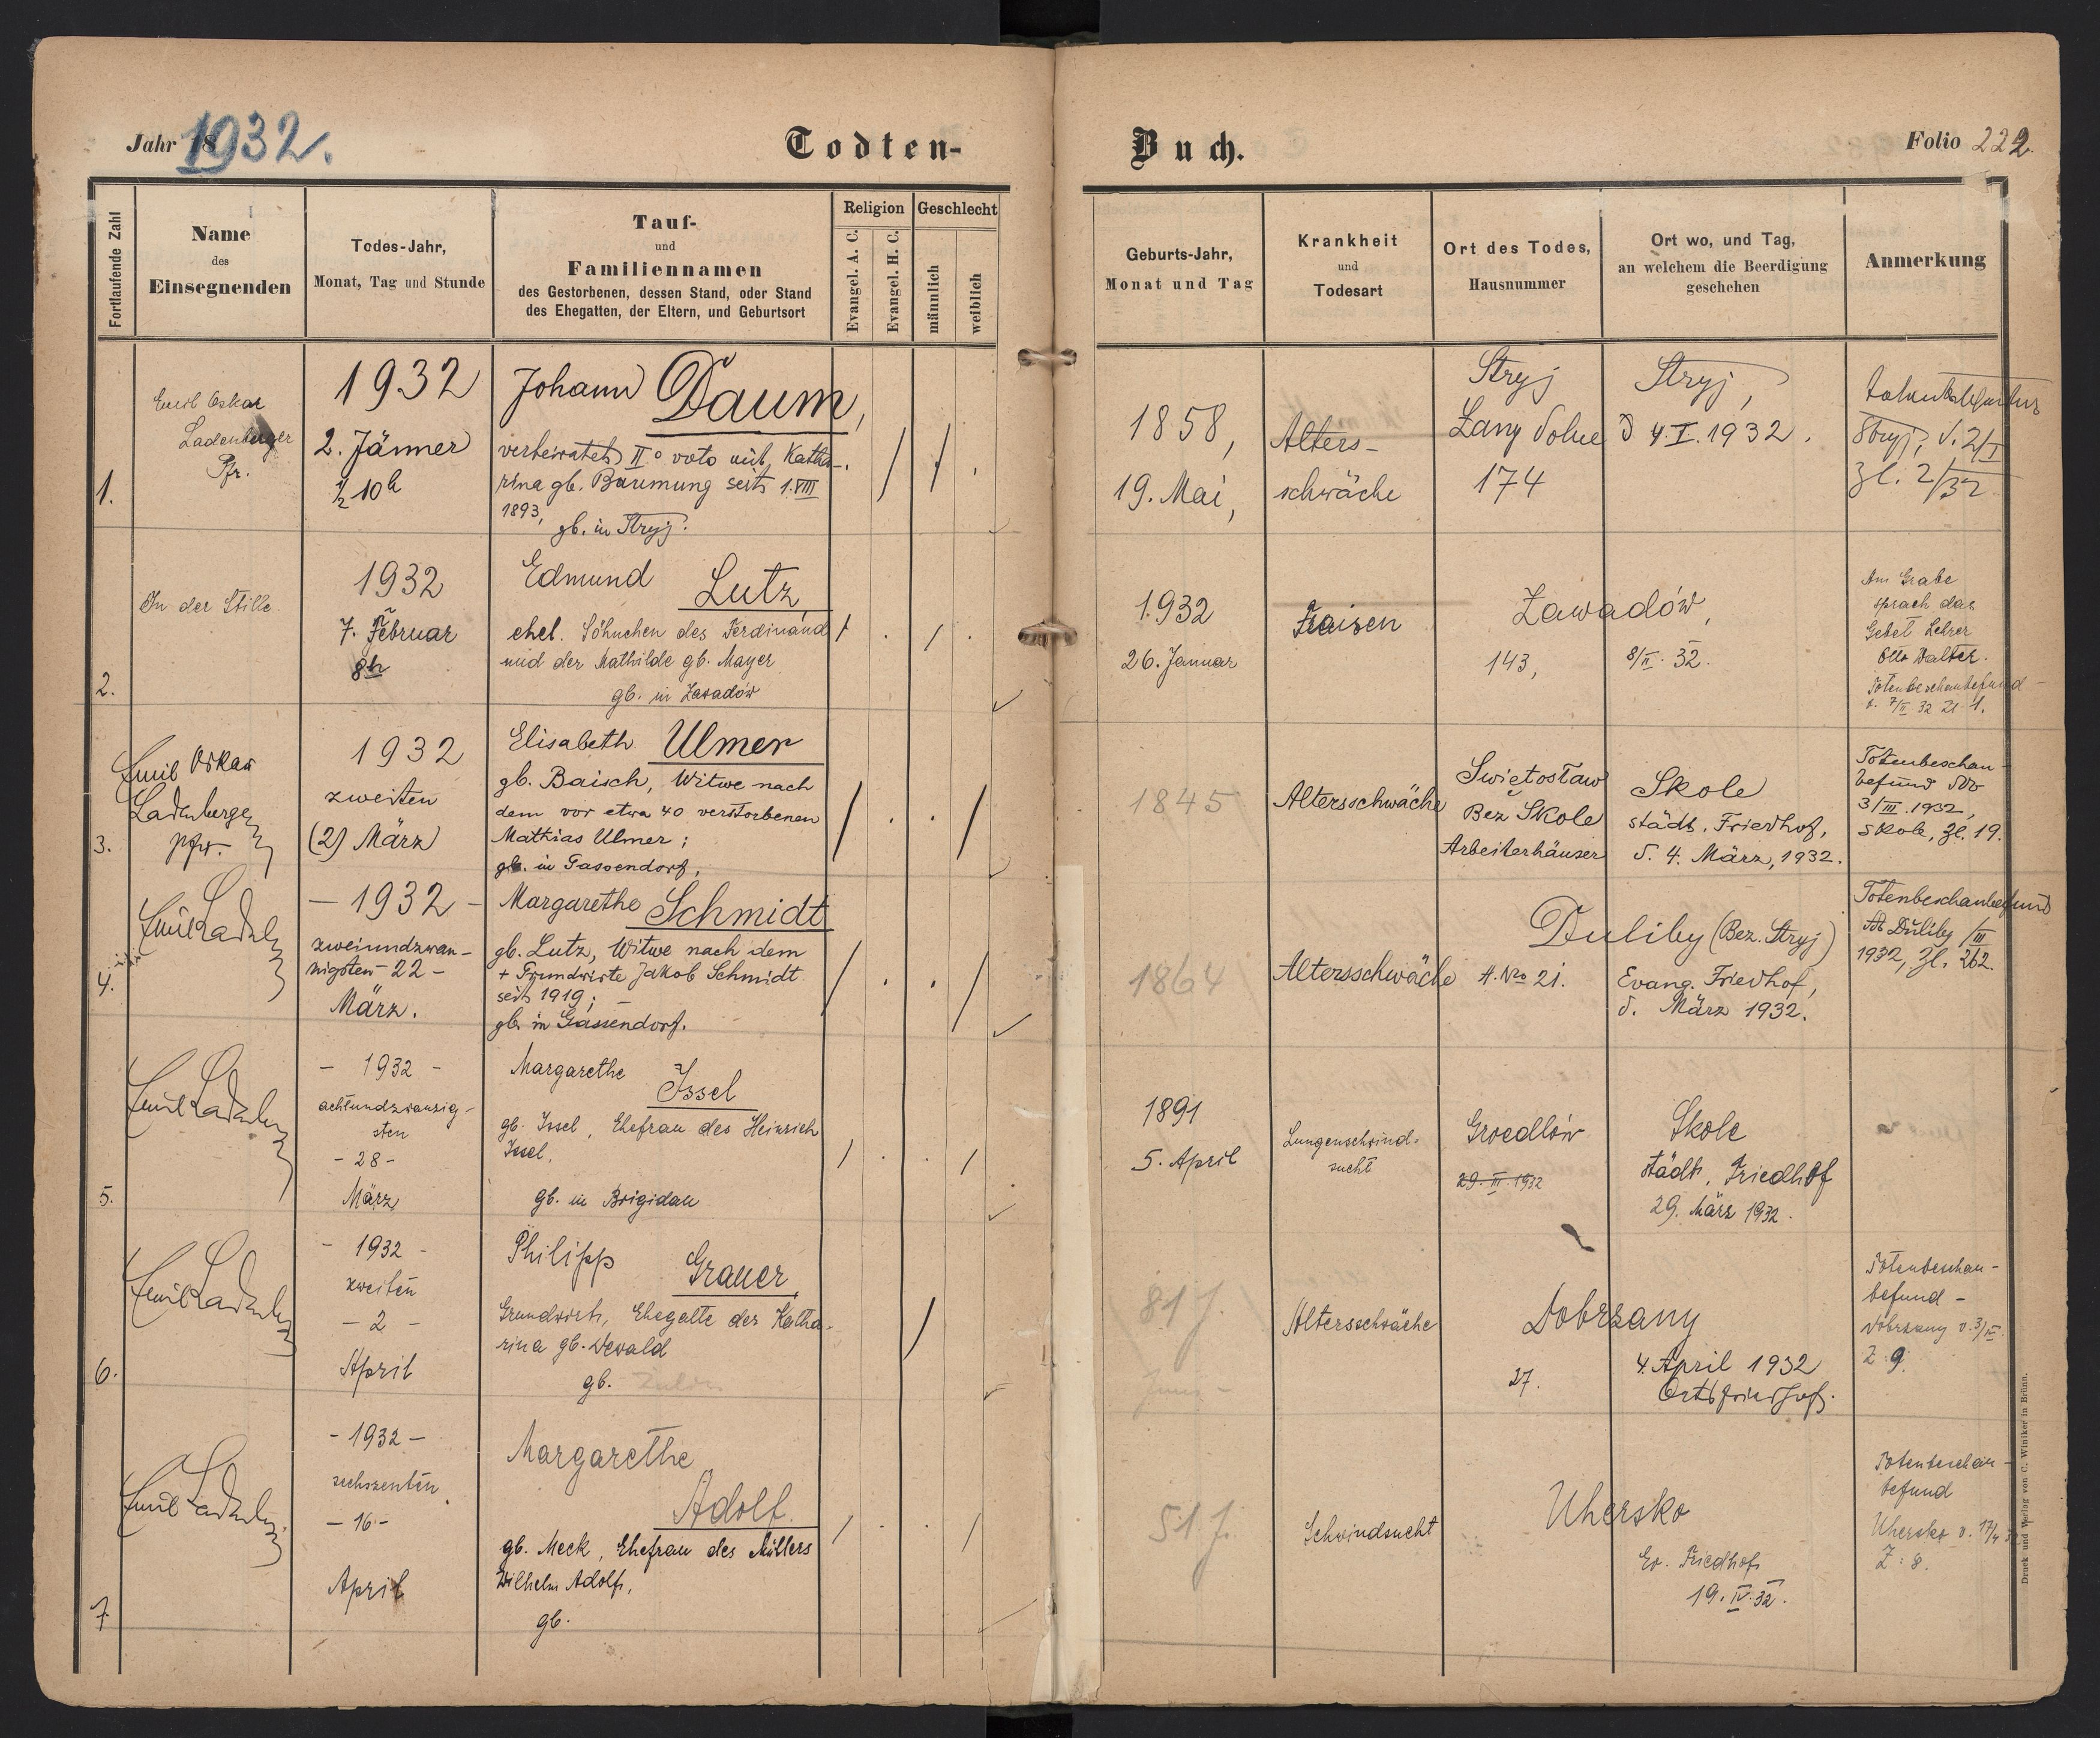 Jahr 18 1932.
Todten-
Buch.
Folio 222.
Fortlaufende Zahl
Name
des
Einsegnenden
Todes-Jahr,
Monat, Tag und Stunde
Tauf-
und
Familiennamen
des Gestorbenen, dessen Stand, oder Stand
des Ehegatten, der Eltern, und Geburtsort
Religion
Evangel. A. C.
Evangel. H. C.
Geschlecht
männlich
weiblich
Geburts-Jahr,
Monat und Tag
Krankheit
und
Todesart
Ort des Todes,
Hausnummer
Ort wo, und Tag,
an welchem die Beerdigung
geschehen
Anmerkung
1.
Emil Oskar
Ladenberger
Pfr.
1932
2. Jänner
1/2 10h
Johann Daum,
verheiratet IIº voto mit Katha-
rina gb. Baumung seit 1.VIII
1893,
gb. in Stryj.
1858,
19. Mai,
Alters-
schwäche
Stryj
Łany Dolne
174
Stryj,
d 4.I.1932.
Stryj, d. 2/I
Zl. 2/32
2.
In der Stille
1932
7. Februar
8h
Edmund Lutz,
ehel. Söhnchen des Ferdinand
und der Mathilde gb. Mayer
gb. in Zavadów
1932
26. Januar
Fraisen
Zawadów,
143,
8/II. 32.
Am Grabe
sprach das
Gebet Lehrer
Otto Walter.
Totenbeschaubefund
v. 7/II 32 Zl. 1.
3.
Emil Oskar
Ladenberger
Pfr.
1932
zweiten
(2) März
Elisabeth Ulmer
gb. Baisch, Witwe nach
dem vor etwa 40 verstorbenen
Mathias Ulmer;
gb. in Gassendorf,
1845
Altersschwäche
Swiętosław
Bez Skole
Arbeiterhäuser
Skole
städt. Friedhof,
d. 4. März, 1932.
Totenbeschau-
befund ddo
3/III.1932,
Skole, Zl. 19.
4.
Emil Ladenberger
- 1932 -
zweiundzwan-
zigsten - 22 -
März.
Margarethe Schmidt
gb. Lutz, Witwe nach dem
+ Grundwirte Jakob Schmidt
seit 1919; -
gb. in Gassendorf.
1864
Altersschwäche
Duliby (Bez. Stryj)
H. No 21.
Evang. Friedhof,
d. März 1932.
Totenbeschaubefund
Duliby /III
1932, Zl. 262.
5.
Emil Ladenberger
- 1932 -
achtundzwanzig-
sten
- 28 -
März
Margarethe
Issel
gb. Issel, Ehefrau des Heinrich
Issel.
gb. in Brigidau
1891
5. April
Lungenschwind-
sucht
Groedlów
29. III. 1932
Skole
städt. Friedhof
29. März 1932.
6.
Emil Ladenberger
- 1932 -
zweiten
- 2 -
April
Philipp
Grauer,
Grundwirt, Ehegatte der Katha-
rina gb. Dewald
gb.
81 J.
Altersschwäche
Dobrzany
27.
4. April 1932
Ortsfriedhof.
Totenbeschau-
befund -
Dobrzany v. 3/IV.
Z. 9.
7
Emil Ladenberger
- 1932 -
sechszenten
- 16 -
April
Margarethe
Adolf.
gb. Meck, Ehefrau des Müllers
Wilhelm Adolf,
gb.
51 J.
Schwindsucht
Uhersko
Ev. Friedhof
19. IV. 32.
Totenbeschau-
befund
Uhersko v. 17/4 32
Z: 8.
Druck und Verlag von C. Winiker in Brünn.